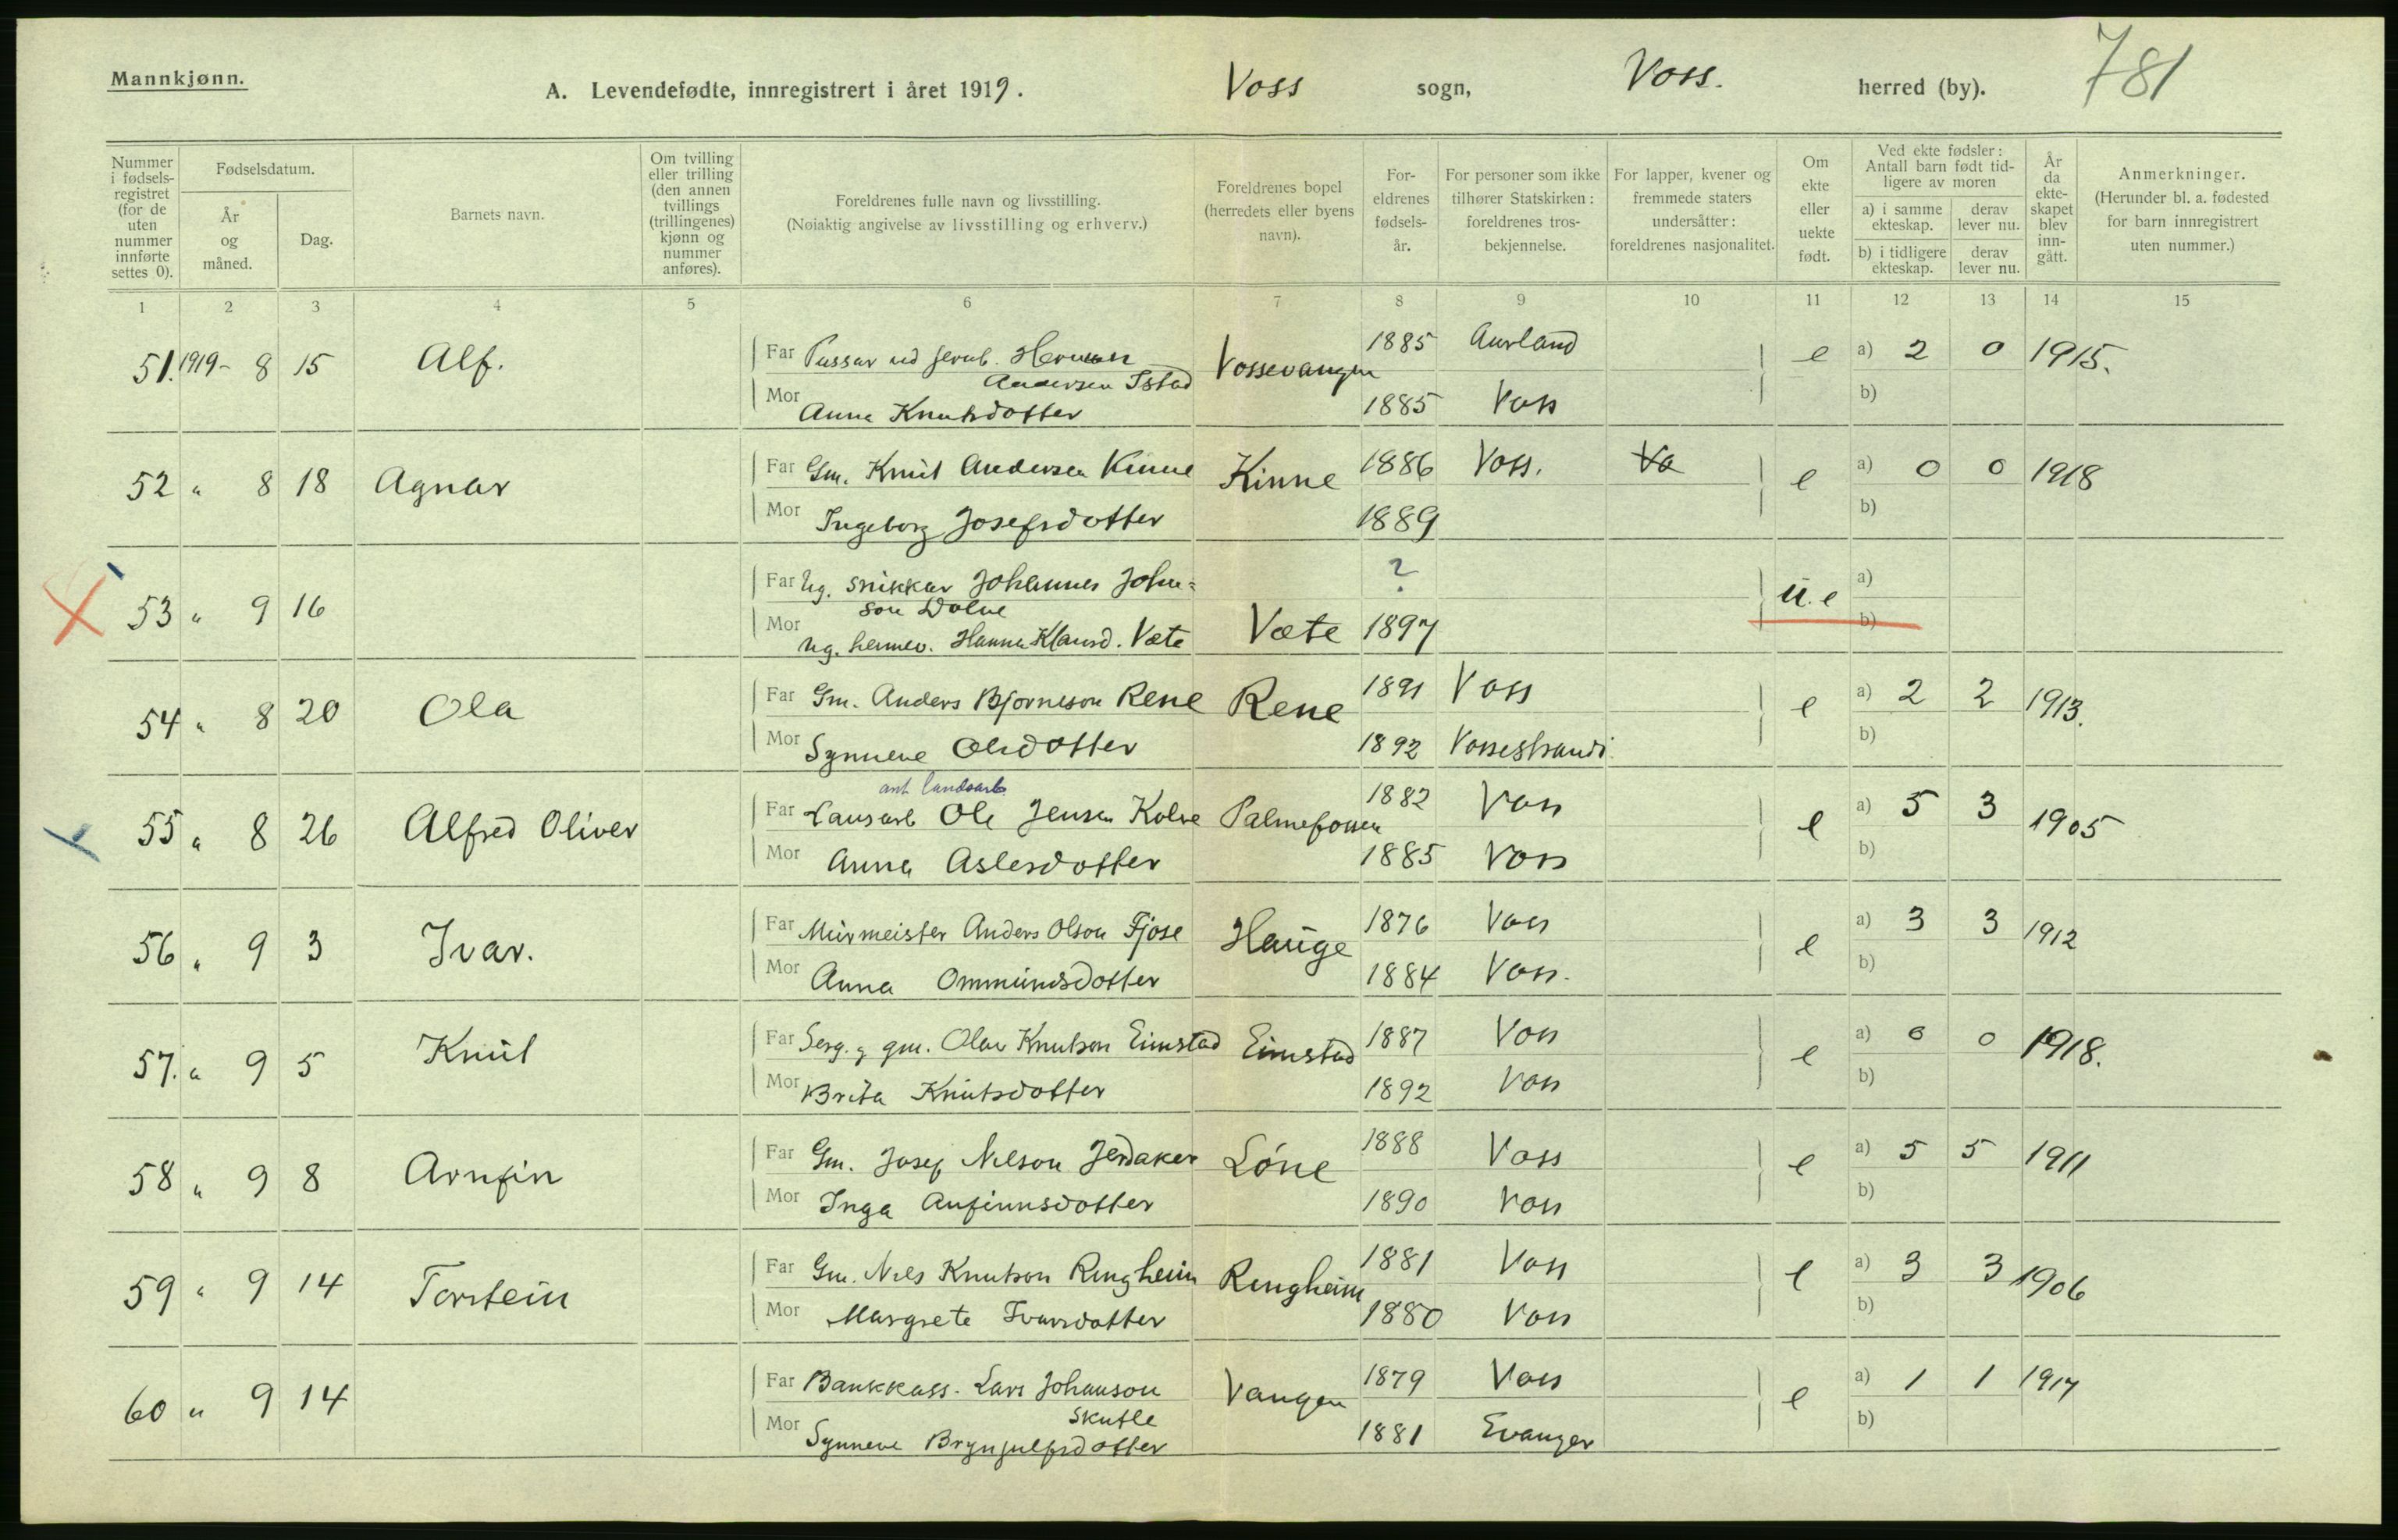 Mannkjønn.
A. Levendefødte, innregistrert i året 1919. Voss sogn, Voss. herred (by). 781
Nummer i fødsels-registret (for de uten nummer innførte settes 0).
Fødselsdatum.
År og måned.
Dag.
Barnets navn.
Om tvilling eller trilling (den annen tvillings (trillingenes) kjønn og nummer anføres).
Foreldrenes fulle navn og livsstilling.
(Nøiaktig angivelse av livsstilling og erhverv.)
Foreldrenes bopel (herredets eller byens navn).
For-eldrenes fødsels-år.
For personer som ikke tilhører Statskirken: foreldrenes tros-bekjennelse.
For lapper, kvener og fremmede staters undersåtter: foreldrenes nasjonalitet.
Om ekte eller uekte født.
Ved ekte fødsler: Antall barn født tid-ligere av moren
a) i samme ekteskap.
derav lever nu.
b) i tidligere ekteskap.
derav lever nu.
År da ekte-skapet blev inn-gått.
Anmerkninger.
(Herunder bl. a. fødested for barn innregistrert uten nummer.)
1 2 3 4 5 6 7 8 9 10 11 12 13 14 15
51. 1919- 8 15 Alf. Far Pussar ved jernb. Herman Andersen Istad Vossevangen 1885 Aurland e a) 2 0 1915.
Mor Anna Knutsdotter 1885 Voss b)
52 " 8 18 Agnar Far Gm. Knut Andersen Kinne Kinne 1886 Voss. Vo e a) 0 0 1918
Mor Ingeborg Josefsdotter 1889 b)
53 " 9 16 Far Ug. snikkar Johannes John=son Dolve ? u.e a)
Mor Ug. heimev. Hanna Klausd. Væte Væte 1897 b)
54 " 8 20 Ola Far Gm. Anders Bjørneson Rene Rene 1891 Voss e a) 2 2 1913.
Mor Synneve Olsdotter 1892 Vossestrandi b)
ant landsarb.
55 " 8 26 Alfred Oliver Far Lausarb Ole Jensen Kolve Palmefossen 1882 Voss e a) 5 3 1905
Mor Anna Aslesdotter 1885 Voss b)
56 " 9 3 Ivar. Far Murmeister Anders Olson Fjose Hauge 1876 Voss e a) 3 3 1912
Mor Anna Ommundsdotter 1884 Voss. b)
57. " 9 5 Knut Far Serg. g gm. Olav Knutson Eimstad Eimstad 1887 Voss e a) 0 0 1918.
Mor Brita Knutsdotter 1892 Voss b)
58 " 9 8 Arnfin Far Gm. Josef Nelson Jerdaker Løne 1888 Voss e a) 5 5 1911
Mor Inga Anfinnsdotter 1890 Voss b)
59 " 9 14 Torstein Far Gm. Nils Knutson Ringheim Ringheim 1881 Voss e a) 3 3 1906
Mor Margrete Ivarsdotter 1880 Voss b)
60 " 9 14 Far Bankkass. Lars Johanson Skutle Vangen 1879 Voss e a) 1 1 1917
Mor Synneve Brynjulfsdotter 1881 Evanger b)